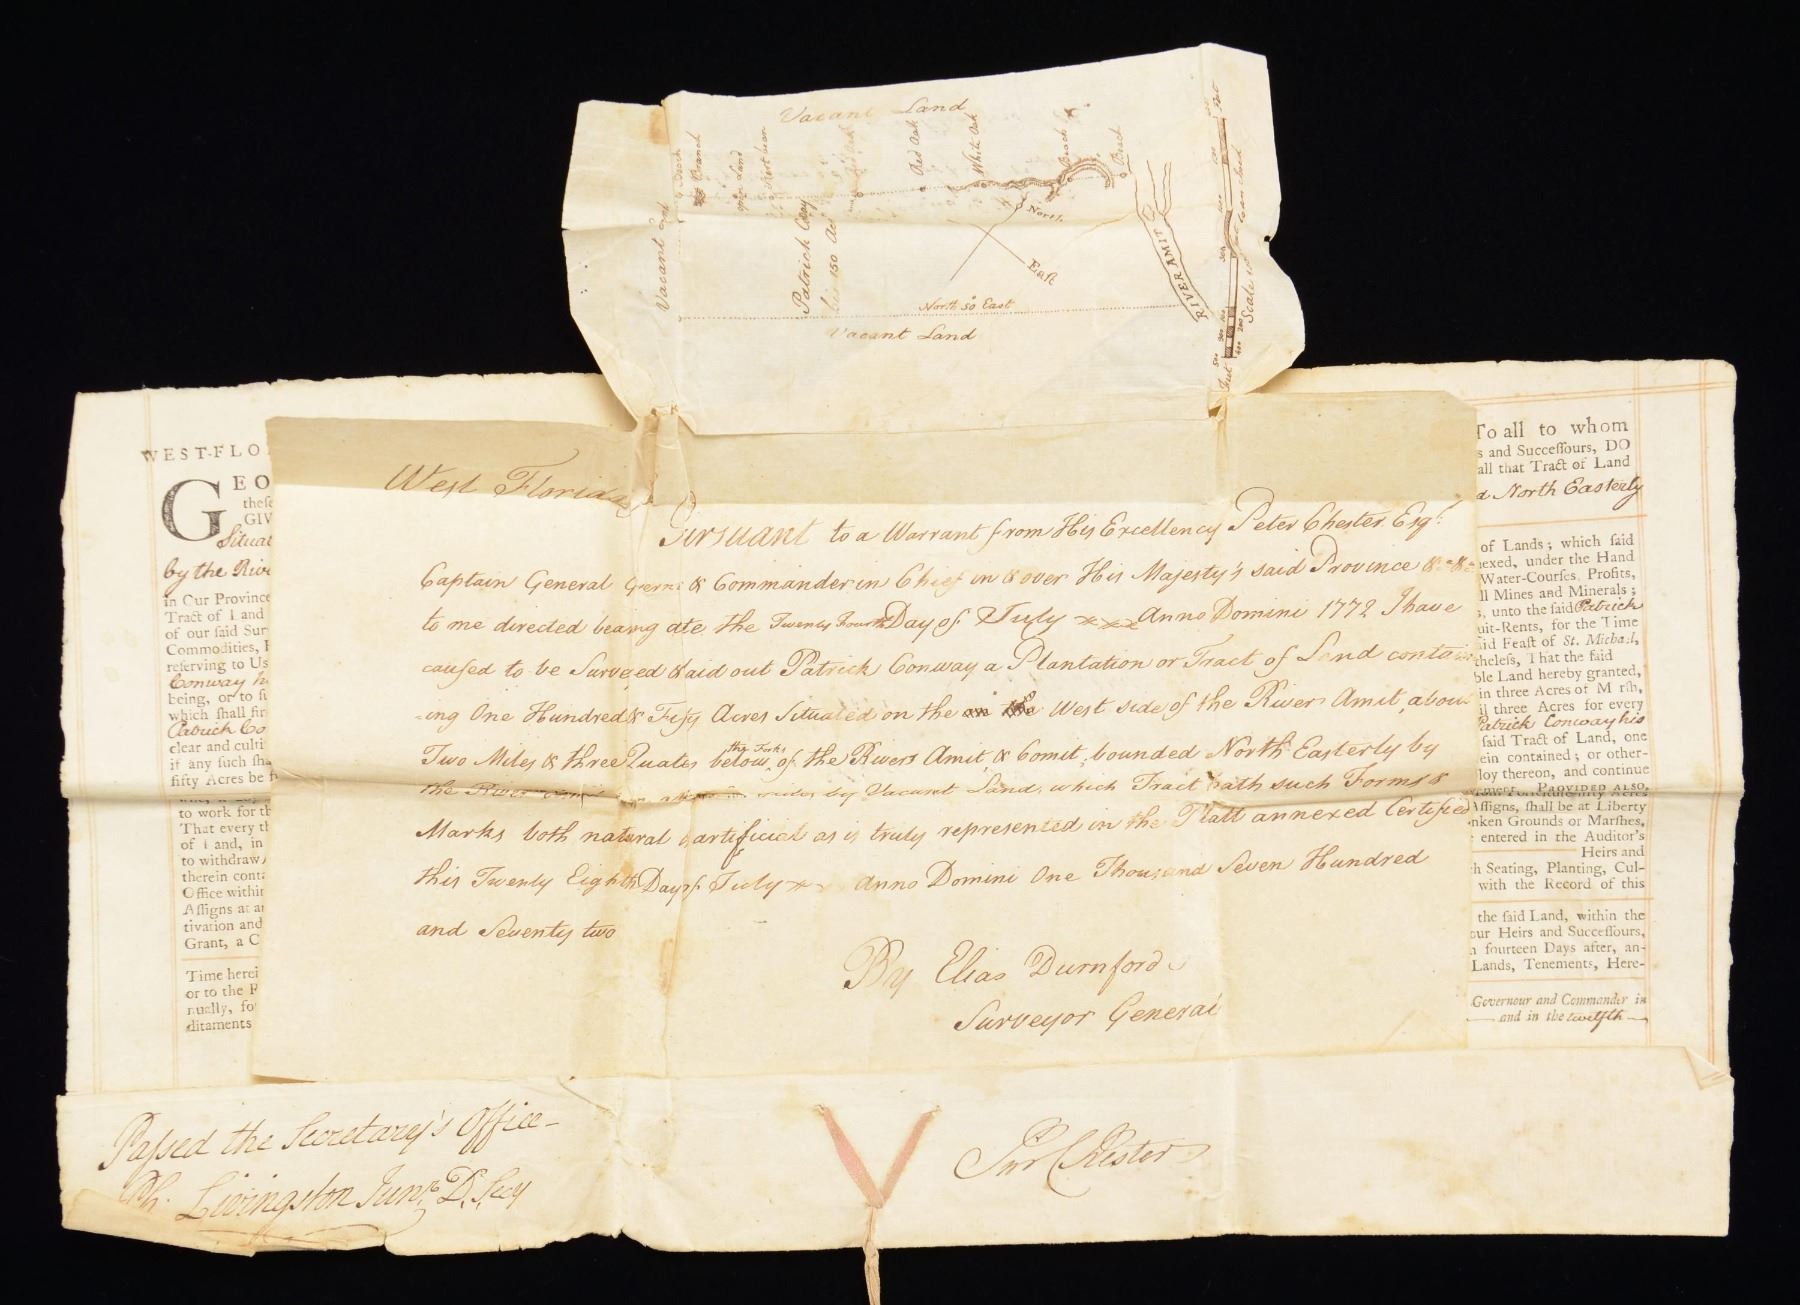 Vacant Land
Beech
Branch
open Land
Red Oak
Red Oak
White Oak
Beech
Beech
Vacant Land
Patrick
150 Ac
North
East
RIVER AMIT
North 50° East
Vacant Land
Feet
Scale
West Florida
Pursuant to a Warrant from His Excellency Peter Chester Esqr.
Captain General & Commander in Chief in & over His Majesty's said Province &c. &c.
to me directed bearing date the Twenty Fourth Day of July Anno Domini 1772 I have
caused to be Surveyed & laid out Patrick Conway a Plantation or Tract of Land contain
-ing One Hundred & Fifty Acres Situated on the West side of the River Amit, about
Two Miles & three Quates below the Forks of the Rivers Amit & Comit, bounded North Easterly by
the River sides by Vacant Land, which Tract hath such Forms &
Marks both natural & artificial as is truly represented in the Platt annexed Certified
this Twenty Eighth Day of July Anno Domini One Thousand Seven Hundred
and Seventy two
By Elias Durnford
Surveyor General
WEST-FLO
GEO
these
GIV
Situat
by the Rive
in Our Province
Tract of Land
of our said Sur
Commodities, F
reserving to Us
Conway h
being, or to su
which shall fir
Patrick Co
clear and culti
if any such sha
fifty Acres be f
to work for th
That every th
of Land, in
to withdraw
therein conta
Office within
Assigns at an
tivation and
Grant, a C
Time herei
or to the P
nually, for
ditaments
To all to whom
s and Successours, DO
all that Tract of Land
d North Easterly
of Lands; which said
nexed, under the Hand
Water-Courses, Profits,
ll Mines and Minerals;
s, unto the said Patrick
uit-Rents, for the Time
aid Feast of St. Michael,
theless, That the said
ble Land hereby granted,
in three Acres of Marsh,
il three Acres for every
Patrick Conway his
said Tract of Land, one
ein contained; or other-
loy thereon, and continue
PROVIDED ALSO,
Assigns, shall be at Liberty
nken Grounds or Marshes,
entered in the Auditor's
Heirs and
ch Seating, Planting, Cul-
with the Record of this
the said Land, within the
our Heirs and Successours,
n fourteen Days after, an-
Lands, Tenements, Here-
Governour and Commander in
and in the twelfth
Passed the Secretary's Office
Ph. Livingston Junr. D. Secy
Petr Chester